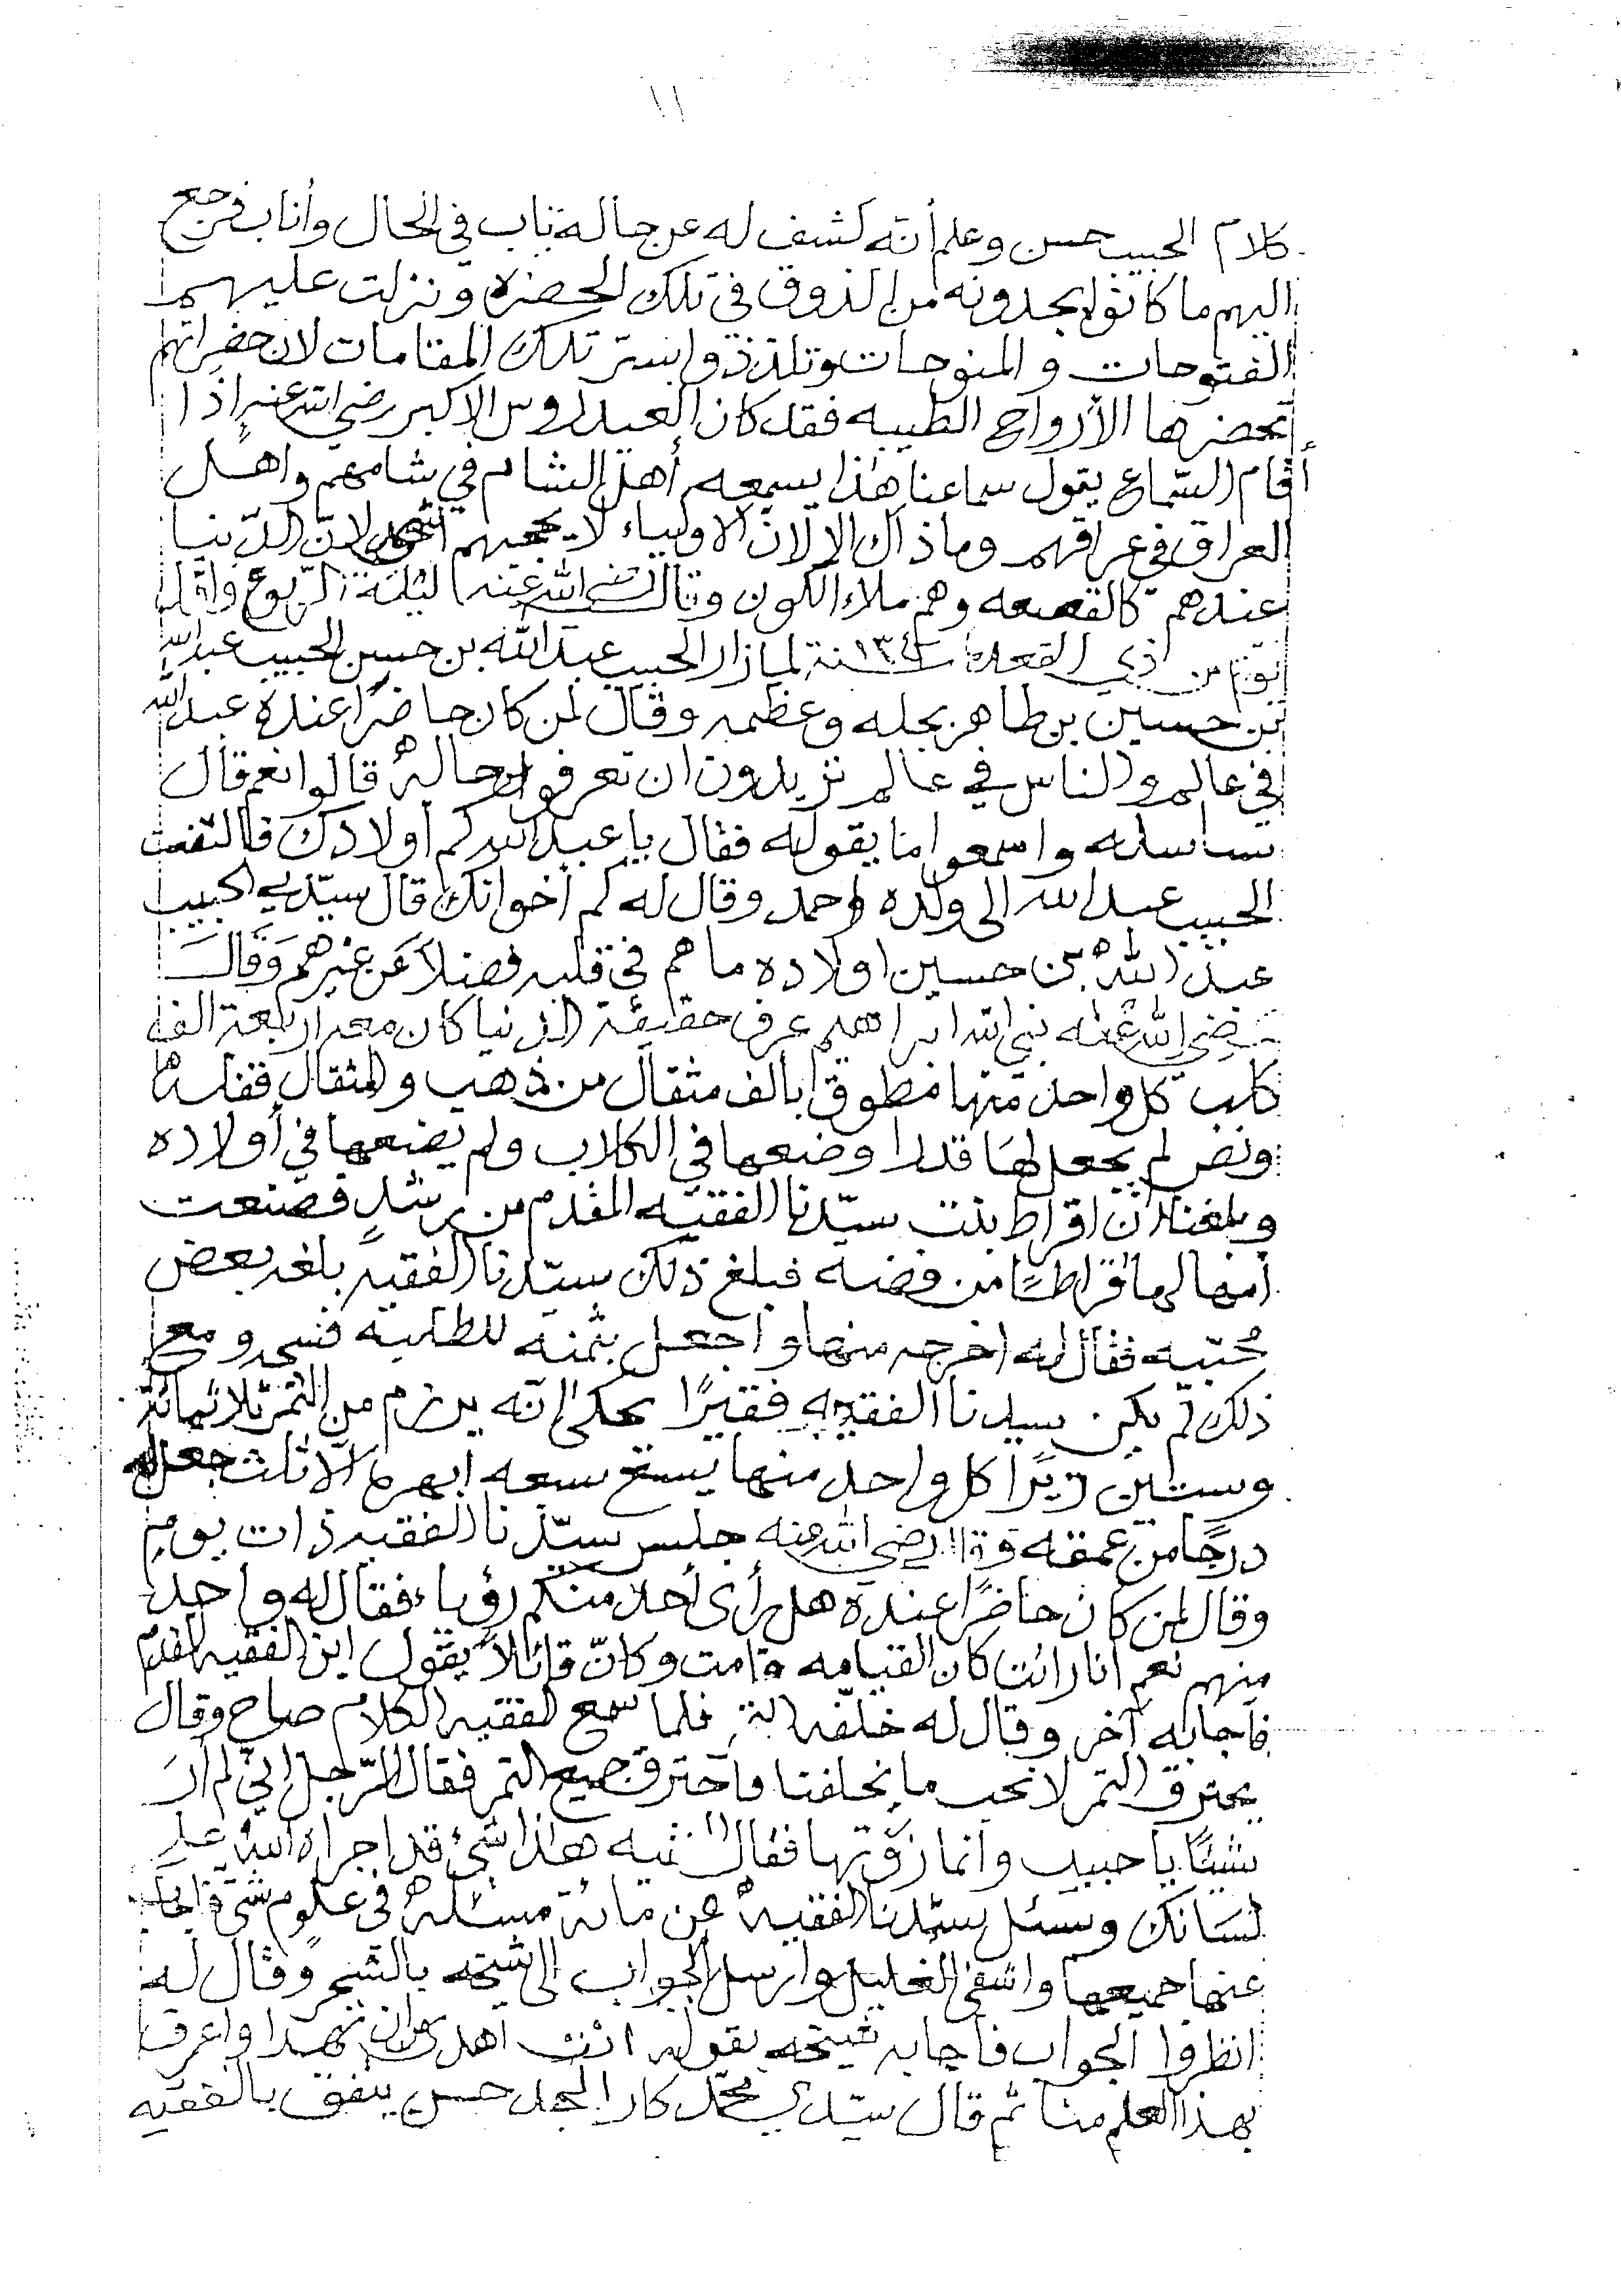 ١١
كلام الحبيب حسن وعلم أنه كشف له عن حاله تاب في الحال وأناب فرجع
اليهم ما كانوا يجدونه من الذوق في تلك الحضره ونزلت عليهم
الفتوحات والمنوحات وتلذذوا بسر تلك المقامات لان حضراتهم
تحضرها الأرواح الطيبه فقد كان العيدروس الاكبر رضي الله عنه اذا
أقام السماع يقول سماعنا هذا يسمعه أهل الشام في شامهم واهل
العراق في عراقهم وما ذاك الا لان الاولياء لا يحجبهم لان الدنيا
عندهم كالقصعه وهم ملاء الكون وقال رضي الله عنه ليلة الربوع
من ذي القعدة سنة لما زار الحبيب عبد الله بن حسن الحبيب عبد الله
بن حسين بن طاهر بجله وعظمه وقال لمن كان حاضرًا عنده عبد الله
في عالم والناس في عالم تريدون ان تعرفوا حاله قالوا نعم قال
سأسله واسمعوا ما يقوله فقال يا عبد الله كم أولادك فالتفت
الحبيب عبد الله الى ولده احمد وقال له كم أخوانك قال سيدي الحبيب
عبد الله بن حسين اولاده ما هم في قلبه فضلا عن غيرهم وقال
رضي الله عنه نبي الله ابراهيم عرف حقيقة الدنيا كان معه اربعة الف
كلب كل واحد منها مطوق بالف مثقال من ذهب والمثقال قفله
ونص لم يجعل لها قدرا وضعها في الكلاب ولم يضعها في أولاده
وبلغنا ان اقراط بنت سيدنا الفقيه المقدم من فصنعت
امها لها قراطًا من فضه فبلغ ذلك سيدنا الفقيه بلغه بعض
محبيه فقال له اخرجه منها واجعل بثمنه للطلبه ومع
ذلك لم يكن سيدنا الفقيه فقيرًا يحكى انه يرزم من التمر ثلاثمائة
وستين زيرًا كل واحد منها
درجًا من عمقه وقال رضي الله عنه جلس سيدنا الفقيه ذات يوم
وقال لمن كان حاضرًا عنده هل رأى أحد منكم رؤياء فقال له واحد
منهم نعم أنا رائت كان القيامه قامت وكان قائلا يقول اين الفقيه المقدم
فأجابه آخر وقال له خلفه التمر فلما سمع الفقيه الكلام صاح وقال
يحترق التمر لا نحب ما يخلفنا فاحترق جميع التمر فقال الرجل إني لم أر
شيئًا يا حبيب وانما زوّرتها فقال انه هذا شيء قد اجراه الله على
لسانك وسئل سيدنا الفقيه عن مائة مسئله في علوم شتى فاجاب
عنها جميعها واشفى الغليل وارسل الجواب الى شيخه بالشحر وقال له
انظروا الجواب فأجابه شيخه بقوله انت اهدى بهذا واعرف
بهذا العلم منا ثم قال سيدي محمد كان الجمل حسن ينفق بالفقيه